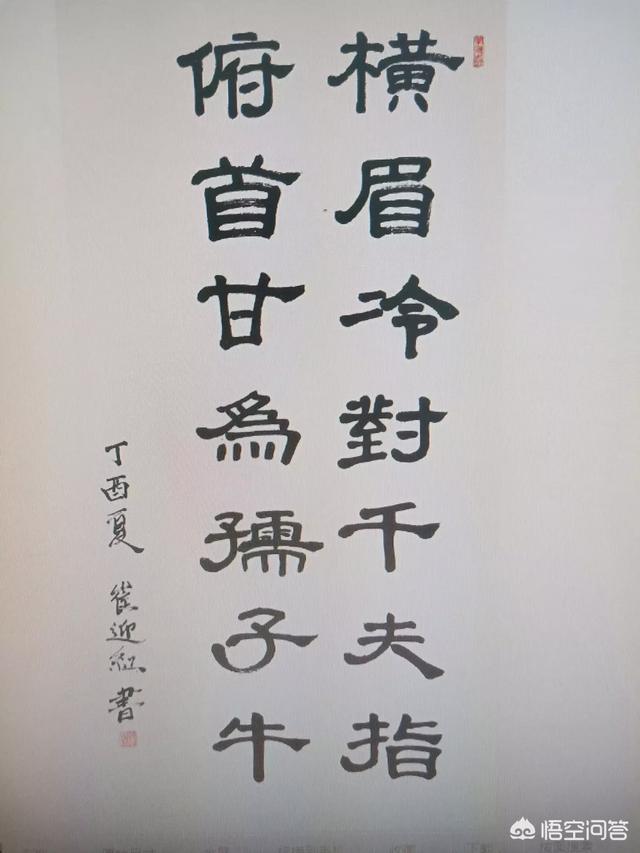 橫眉冷對千夫指
俯首甘為孺子牛
丁酉夏
迎紅書
悟空问答